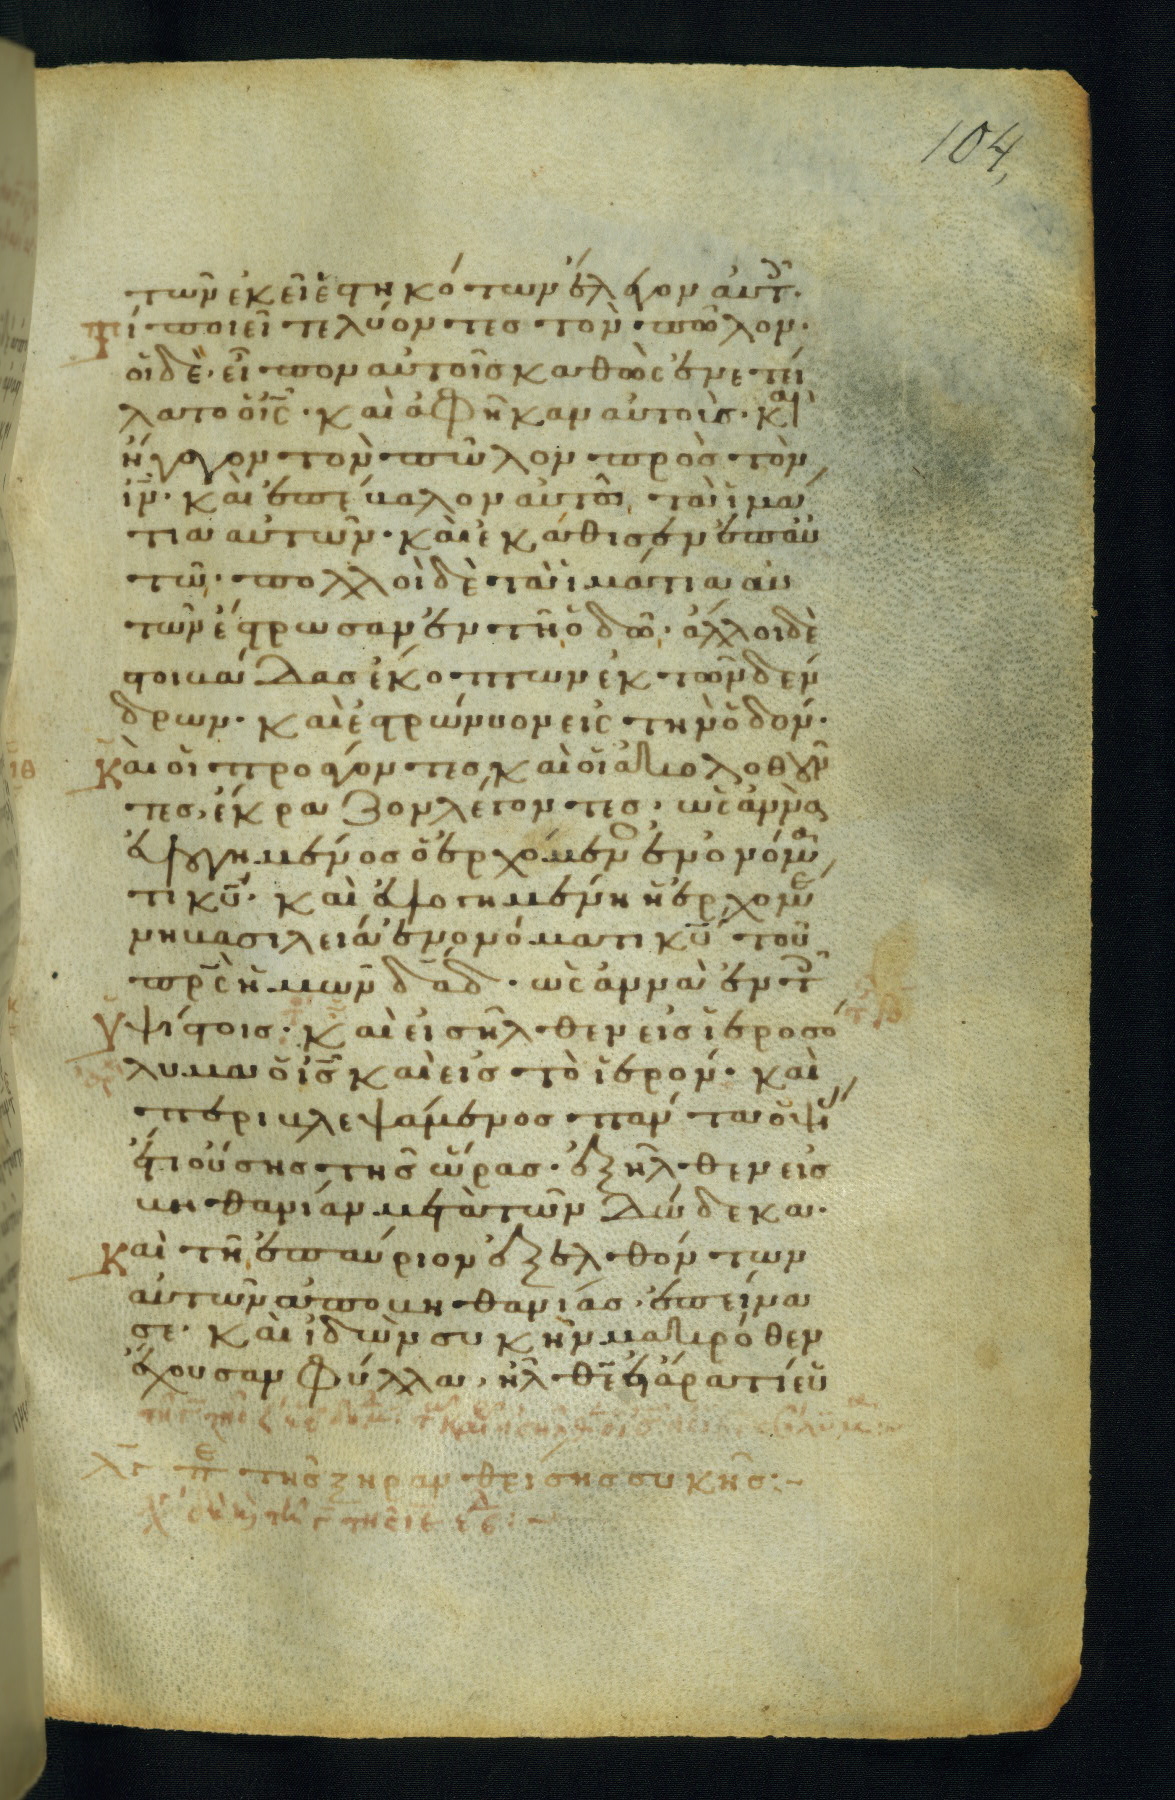 104
των ἐκεῖ ἑστηκότων ἔλεγον αυτ.
Τί ποιεῖτε λύοντες τὸν πῶλον·
οἱ δὲ εἶπον αὐτοῖς καθὼς ἐνετεί
λατο ὁ ις̅· καὶ ἀφῆκαν αὐτοὺς· κ(αὶ)
ἤγαγον τὸν πῶλον πρὸς τὸν
ιν̅· καὶ ἐπέβαλον αὐτῷ τὰ ἱμά
τια αὐτῶν· καὶ ἐκάθισεν ἐπ' αὐ
τῷ· πολλοὶ δὲ τὰ ἱμάτια αὐ
τῶν ἔστρωσαν ἐν τῇ ὁδῷ· ἄλλοι δὲ
στοιβάδας ἔκοπτων ἐκ τῶν δέν
δρων· καὶ ἐστρώννυον εἰς τὴν ὁδόν·
Καὶ οἱ προάγοντες καὶ οἱ ἀκολοθοῦν
τες, ἔκραζον λέγοντες· ὡσαννὰ
εὐλογημένος ὁ ἐρχόμεν ἐν ὀνόμα
τι κυ̅· καὶ εὐλογημένη ἡ ἐρχομε
νη βασιλεία ἐν ὀνόματι κυ̅ τοῦ
πρς̅ ἡμῶν δαδ̅· ὡσαννὰ ἐν τ
ὑψίστοις· Καὶ εἰσῆλθεν εἰς ἱεροσό
λυμα ὁ ις̅ καὶ εἰς τὸ ἱερόν· καὶ
περιβλεψάμενος πάντα ὀψί
ας ἤδη οὔσης τῆς ὥρας· ἐξῆλθεν εἰς
βηθανίαν μετὰ τῶν δώδεκα·
Καὶ τῇ ἐπαύριον ἐξελθόντων
αὐτῶν ἀπὸ βηθανίας, ἐπείνα
σε· καὶ ἰδὼν συκῆν μακρόθεν
ἔχουσαν φύλλα, ἦλθεν εἰ ἄρα τί εὑ
τῆς ξηρανθείσης συκῆς:~